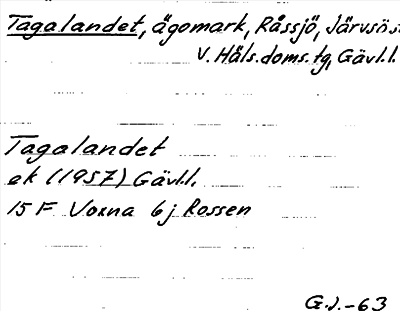 Tagalandet, ägomark, Råssjö, Järvsö s:n
V. Häls. doms. tg, Gävl.l.
Tagalandet
ek (1957) Gävl.l.
15 F Voxna 6 j Rossen
G.J. -63